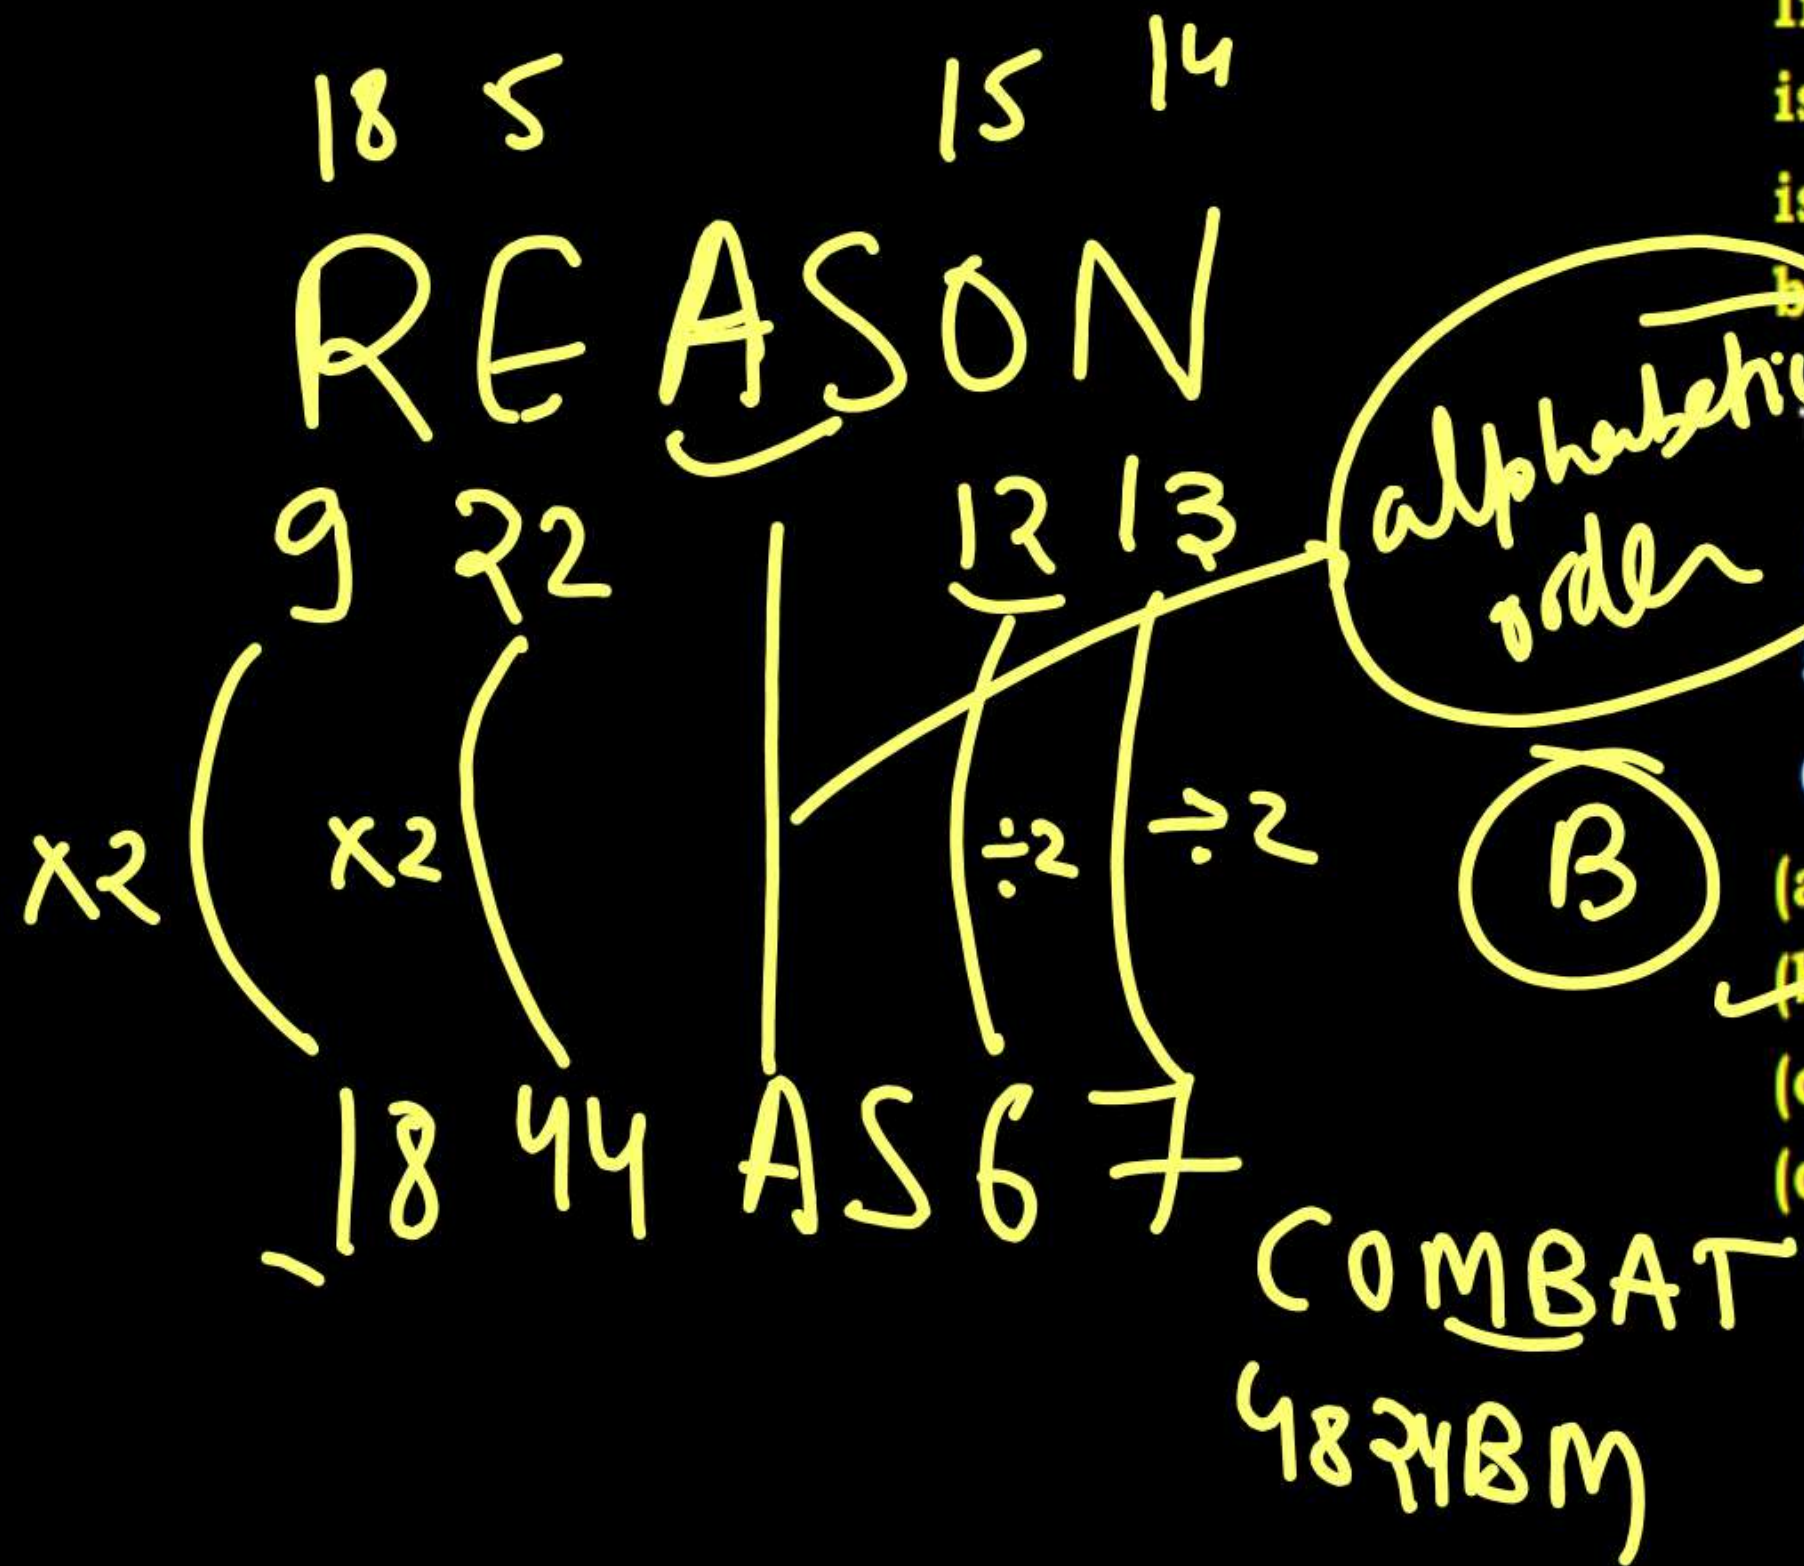 18 5 15 14
REASON
9 22 12 13
alphabetic
order
x2 x2 ÷2 ÷2
B
18 44 AS 6 7
COMBAT
4824BM